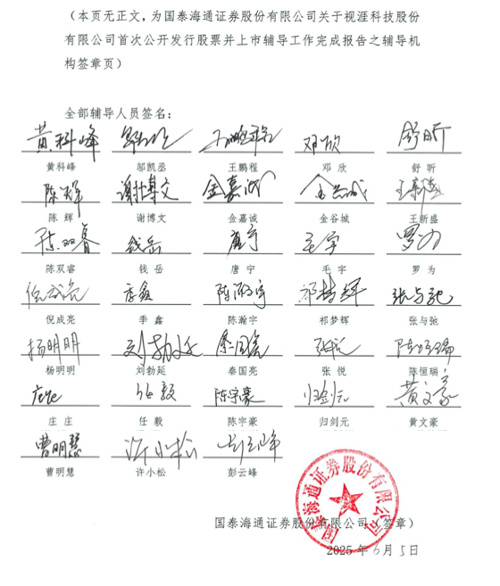 （本页无正文，为国泰海通证券股份有限公司关于视涯科技股份
有限公司首次公开发行股票并上市辅导工作完成报告之辅导机
构签章页）
全部辅导人员签名：
黄科峰 邬凯丞 王鹏程 邓欣 舒昕
黄科峰 邬凯丞 王鹏程 邓 欣 舒 昕
陈辉 谢博文 金嘉诚 金谷城 王新盛
陈 辉 谢博文 金嘉诚 金谷城 王新盛
陈双睿 钱岳 唐宁 毛宇 罗为
陈双睿 钱 岳 唐 宁 毛 宇 罗 为
倪成亮 季鑫 陈瀚宇 祁梦辉 张与弛
倪成亮 季 鑫 陈瀚宇 祁梦辉 张与弛
杨明明 刘勃延 秦国亮 张悦 陈恒瑞
杨明明 刘勃延 秦国亮 张 悦 陈恒瑞
庄庄 任毅 陈宇豪 归剑元 黄文豪
庄 庄 任 毅 陈宇豪 归剑元 黄文豪
曹明慧 许小松 彭云峰
曹明慧 许小松 彭云峰
国泰海通证券股份有限公司
国泰海通证券股份有限公司（签章）
2025年6月5日